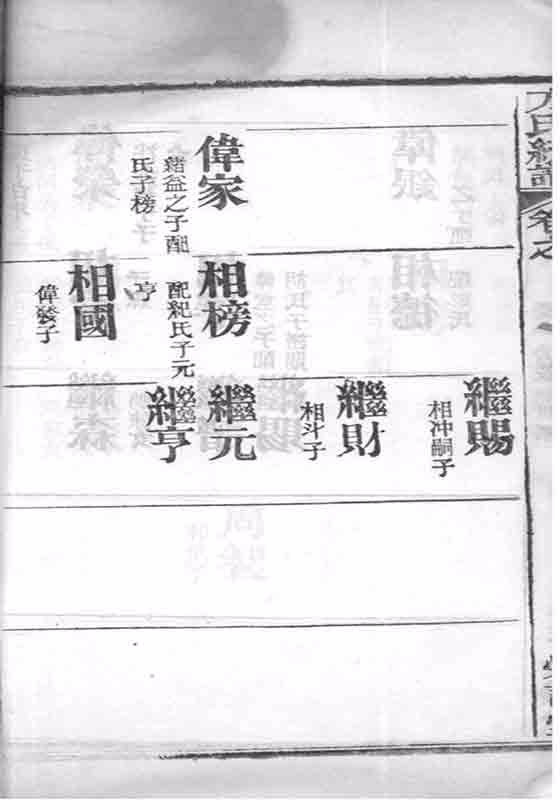 方氏續譜
卷之
偉家
緒益之子配
氏子榜
相榜
配紀氏子元
亨
相國
偉發子
繼賜
相冲嗣子
繼財
相斗子
繼元
繼亨